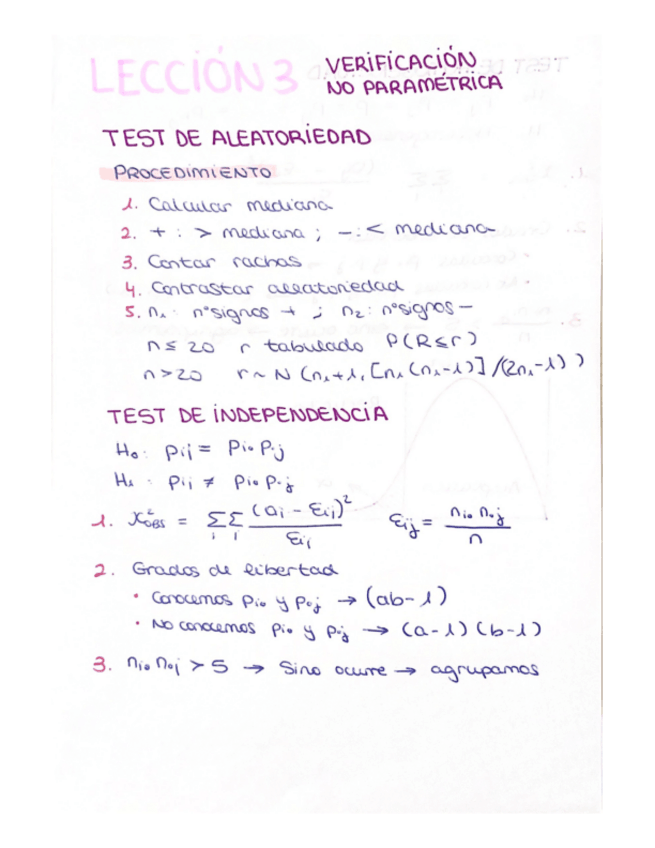 LECCIÓN 3 VERIFICACIÓN
NO PARAMÉTRICA
TEST DE ALEATORIEDAD
PROCEDIMIENTO
1. Calcular mediana
2. + : > mediana ; - : < mediana
3. Contar rachas
4. Contrastar aleatoriedad
5. n₁ : nº signos + ; n₂ : nº signos -
n ≤ 20 r tabulado P(R≤r)
n > 20 r ~ N (n₁+1, [n₁ (n₁-1)] /(2n₁-1) )
TEST DE INDEPENDENCIA
H₀ : pij = pi• p•j
H₁ : pij ≠ pi• p•j
1. χ²OBS = ΣΣ (Oi - Eij)² / Eij Eij = ni• n•j / n
i j
2. Grados de libertad
• Conocemos pi• y p•j → (ab-1)
• No conocemos pi• y p•j → (a-1)(b-1)
3. ni• n•j > 5 → Sino ocurre → agrupamos